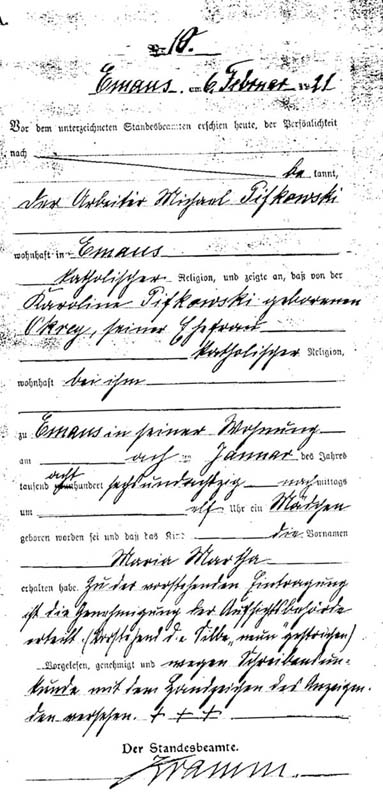 Nr. 10.
Emaus, am 6. Februar 1921
Vor dem unterzeichneten Standesbeamten erschien heute, der Persönlichkeit
nach
bekannt,
der Arbeiter Michael
wohnhaft in Emaus
katholischer Religion, und zeigte an, daß von der
Karoline geborenen
Okrey, seiner Ehefrau
katholischer Religion,
wohnhaft bei ihm
zu Emaus in seiner Wohnung
am Januar des Jahres
tausend acht hundert sechsundachtzig nachmittags
um elf Uhr ein Mädchen
geboren worden sei und daß das Kind die Vornamen
Maria Martha
erhalten habe. Zu der vorstehenden Eintragung
ist die Genehmigung der Aufsichtsbehörde
erteilt. (Vorstehend die Silbe „neun" gestrichen)
Vorgelesen, genehmigt und wegen Schreibensun-
kunde mit dem Handzeichen des Anzeigen-
den versehen. + + +
Der Standesbeamte.
Kramm.